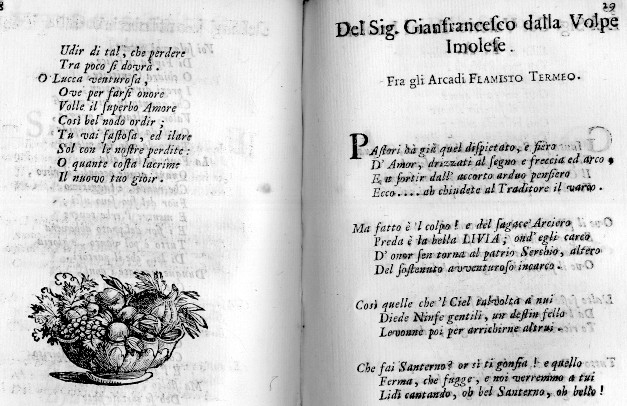 8
Udir di tal, che perdere
Tra poco si dovrà.
O Lucca venturosa,
Ove per farsi onore
Volle il superbo Amore
Così bel nodo ordir;
Tu vai fastosa, ed ilare
Sol con le nostre perdite:
O quante costa lacrime
Il nuovo tuo gioir.
29
Del Sig. Gianfrancesco dalla Volpe
Imolese.
Fra gli Arcadi FLAMISTO TERMEO.
PAstori hà già quel dispietato, e fiero
D' Amor, drizzati al segno e freccia ed arco,
E a sortir dall' accorto arduo pensiero
Ecco.... ah chiudete al Traditore il varco.
Ma fatto è 'l colpo! e del sagace Arciero
Preda è la bella LIVIA; ond' egli carco
D' onor sen torna al patrio Serchio, altero
Del sostenuto avventuroso incarco.
Così quelle che 'l Ciel talvolta a nui
Diede Ninfe gentili, un destin fello
Levonne poi per arricchirne altrui.
Che fai Santerno? or sì ti gonfia! e quello
Ferma, che fugge, e noi verremmo a tui
Lidi cantando, oh bel Santerno, oh bello!